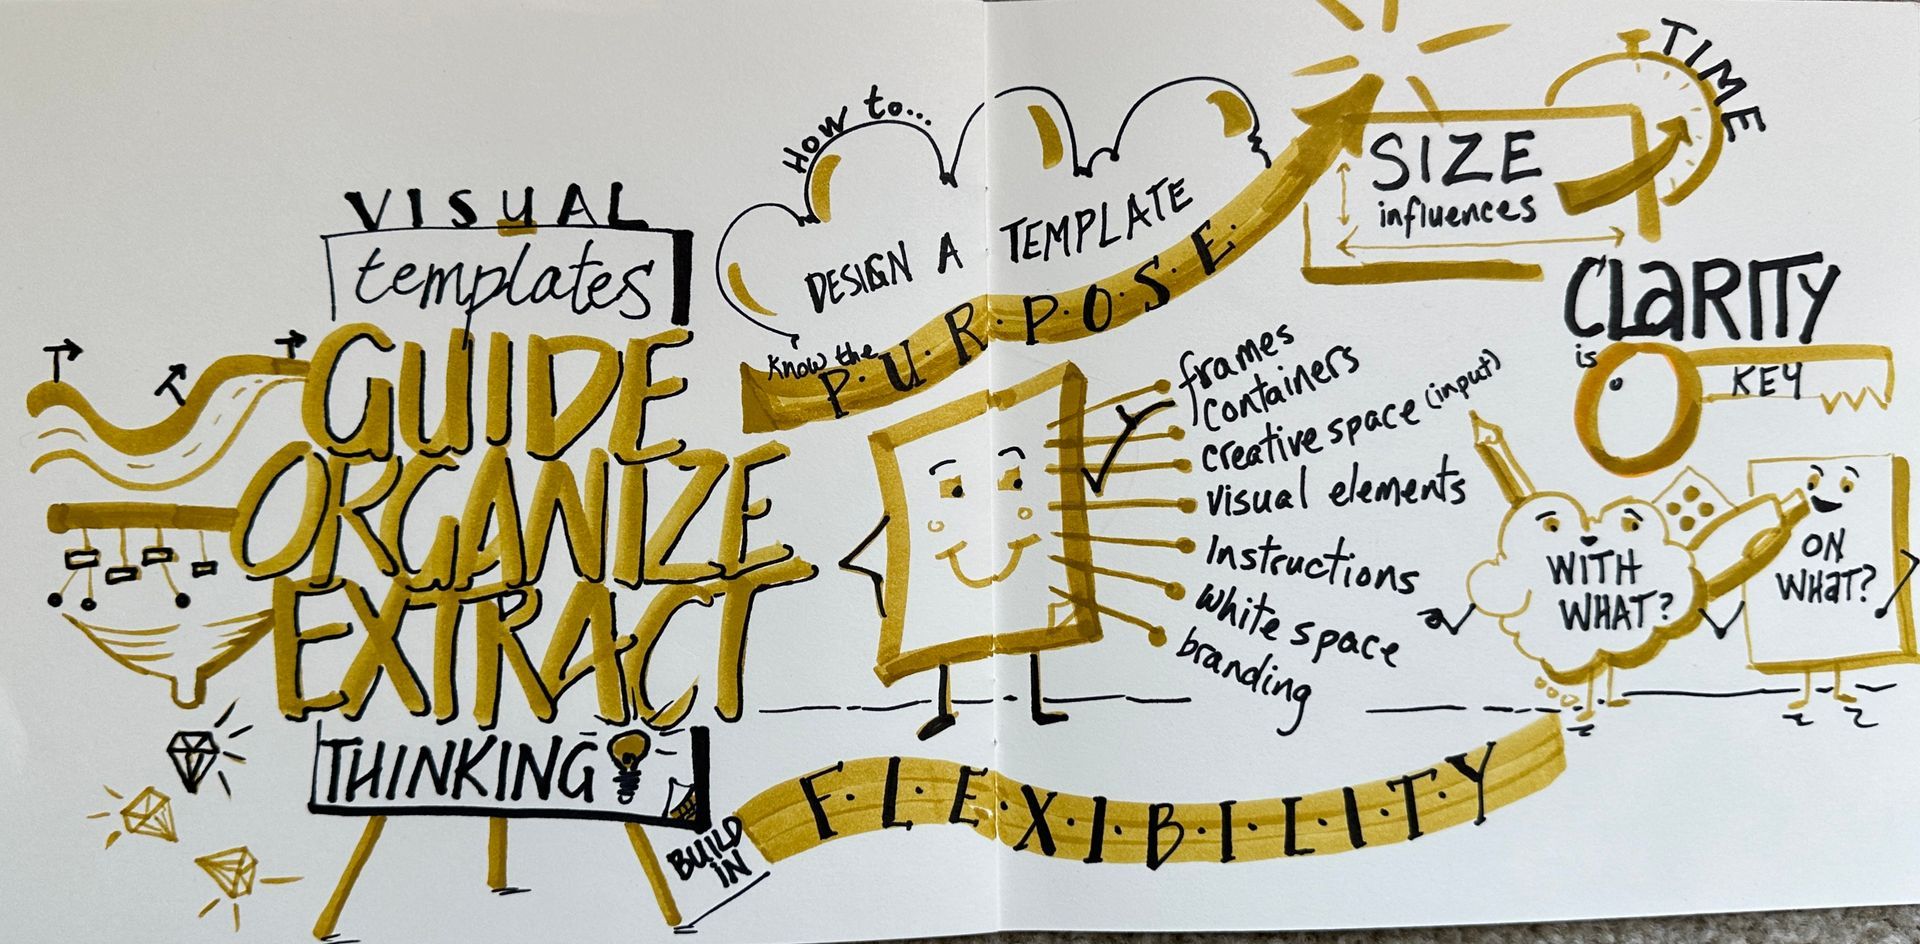 VISUAL
templates
GUIDE
ORGANIZE
EXTRACT
THINKING
How to...
DESIGN A TEMPLATE
Know the
P·U·R·P·O·S·E·
frames
containers
creative space (input)
visual elements
Instructions
white space
branding
BUILD
IN
F·L·E·X·I·B·I·L·I·T·Y
TIME
SIZE
influences
CLaRITY
is
KEY
WITH
WHAT?
ON
WHaT?